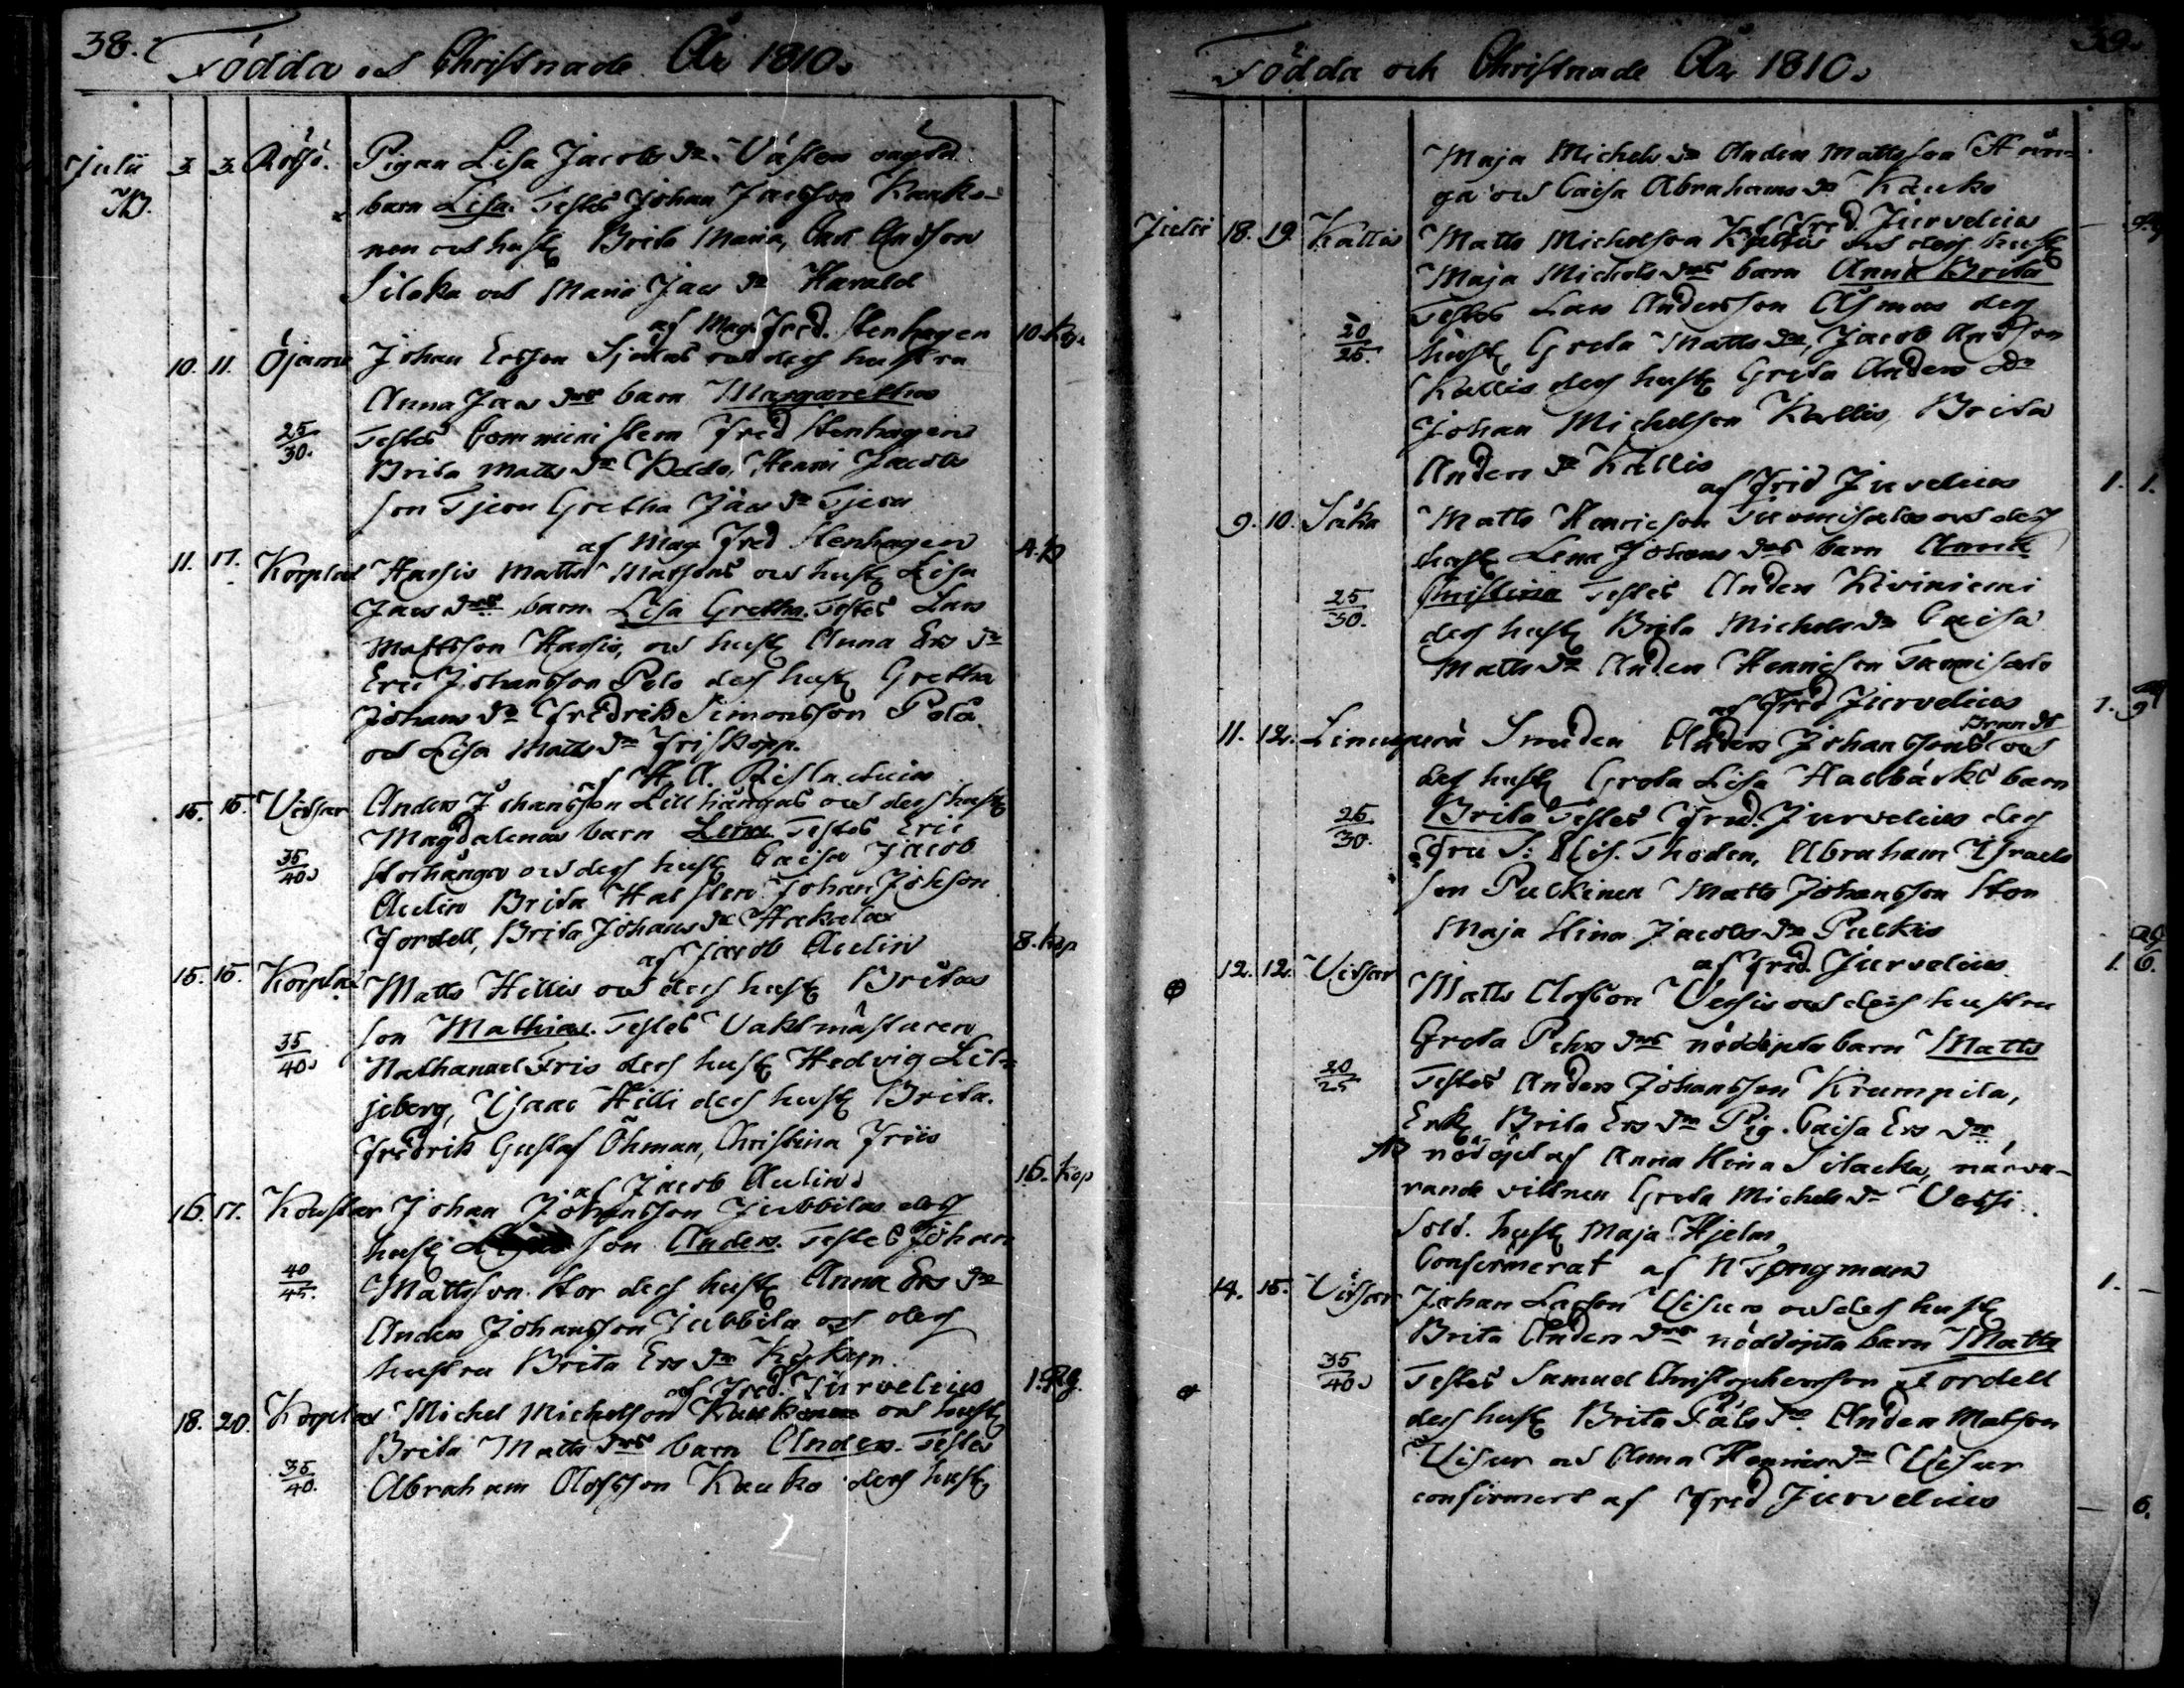 38.
Födda och Christnade År 1810.
Julii 3. 3. Rötsö. Pigan Lisa Jacobs dr. Västens oägta
barn Lisa. Testes Johan Jacsson Kauko-
nen och hust Brita Maria, And Andsson
Silaka och Maria Jacs dr Harald
af Mag. Fred. Stenhagen
10. Kp.
10. 11. Öjarne Johan Ersson Sjöbäs och des hustru
Anna Jacs drs barn Margaretha
25/30. Testes Comministern Fred Stenhagen
Brita Matts dr Henric Jacobs
son Tjeru Gretha Jacs dr Tjeru
af Mag Fred Stenhagen
11. 17. Korplax Harsis Matts Matssons och hust Lisa
Jacs drs barn Lisa Gretha. Testes Lars
Mattsson Harsis, och hust Anna Ers dr
Eric Johansson Polo des hust Gretha
Johans dr Fredrik Simonsson Polo
och Lisa Matts dr Friskopp.
af H. A.
15. 15. Vitsar Anders Johansson Lillhångas och des hust
Magdalenas barn Lena Testes Eric
35/40. Storhånga och des hust Caisa Jacob
Aulin Brita Halsten Johan Johsson
Fordell, Brita Johans dr
af Jacob Aulin
8. Kop
15. 15. Korplax Matts Hillis och des hust Britas
son Mathias. Testes Vaktmästaren
35/40. Nathanael Fris des hust Hedvig Lil-
jeberg, Isaac Hilli des hust Brita.
Fredrik Gustaf Öhman, Christina Friis
af Jacob Aulin.
16. Kop
16. 17. Johan Johansson Jubbilas des
hust son Anders. Testes Johan
40/45. Mattsson Stor des hust Anna Ers dr
Anders Johansson Jubbila och des
hustru Brita Ers dr
af Fred. Jurvelius
18. 20. Korplax Michel Michelson Kaukonen och hust
Brita Matts drs barn Anders. Testes
35/40. Abraham Olofsson Kauko des hust
39.
Födda och Christnade År 1810.
Maja Michels dr Anders Mattsson Hån-
ga och Caisa Abrahams dr Kauko
af Fred. Jurvelius
Julii 18. 19. Kallis Matts Michelson Kallis och des hust
Maja Michels drs barn Anna Brita
Testes Lars Andersson Åsmus des
20/25. hust Greta Matts dr, Jacob Andsson
Kallis des hust Greta Anders dr
Johan Michelson Kallis, Brita
Anders dr Kallis
af Fred Jurvelius
1. 1.
9. 10. Såka Matts Henricson och des
hust Lena Johans drs barn Anna
25/30. Christina Testes Anders Kiviniemi
des hust Brita Michels dr Caisa
Matts dr Anders Henricson
af Fred Jurvelius
1. 9
11. 12. Linnuperä Smeden Anders Johanssons Brandt och
des hust Greta Lisa Hallbäcks barn
25/30. Brita Testes Fred. Jurvelius des
Fru S: Elis. Thoden, Abraham Israels
son Pulkinen Matts Johansson Stor
Maja Stina Jacobs dr Pulkis
af Fred. Jurvelius
1. 6.
12. 12. Vitsar Matts Olofsson Vessis och des hustru
Greta Pehrs drs nöddöpta barn Matts
20/25 Testes Anders Johansson Krumpila,
Enk. Brita Ers dr Pig. Caisa Ers dr
NB nöddöpt af Anna Stina Silacka, närva-
rande vittnen Greta Michels dr Vessi
Sold. hust Maja Hjelm,
Confirmerat af N Tengman
1. -
14. 15. Vitsar Johan Larson Visurs och des hust
Brita Anders drs nöddöpta barn Matts
35/40. Testes Samuel Christophersson Fordell
des hust Brita Påls dr Anders Matsson
Visur och Anna Henrics dr Visur
confirmert af Fred Jurvelius
- 6.